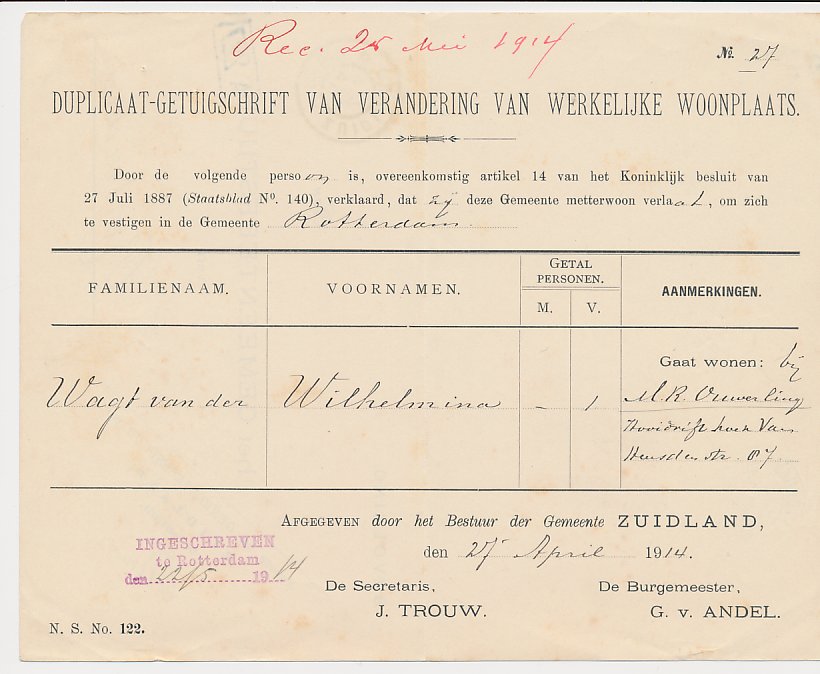 Rec. 25 Mei 1914
No. 27
DUPLICAAT-GETUIGSCHRIFT VAN VERANDERING VAN WERKELIJKE WOONPLAATS.
Door de volgende persoon is, overeenkomstig artikel 14 van het Koninklijk besluit van
27 Juli 1887 (Staatsblad No. 140), verklaard, dat zij deze Gemeente metterwoon verlaat, om zich
te vestigen in de Gemeente Rotterdam
FAMILIENAAM. VOORNAMEN. GETAL PERSONEN. AANMERKINGEN.
M. V.
Gaat wonen: bij
Wagt van der Wilhelmina - 1 M.R. Ouwerling
hoek Van
Heusdenstr. 87
AFGEGEVEN door het Bestuur der Gemeente ZUIDLAND,
den 27 April 1914.
INGESCHREVEN
te Rotterdam
den 22/5 1914
De Secretaris, De Burgemeester,
J. TROUW. G. v. ANDEL.
N. S. No. 122.